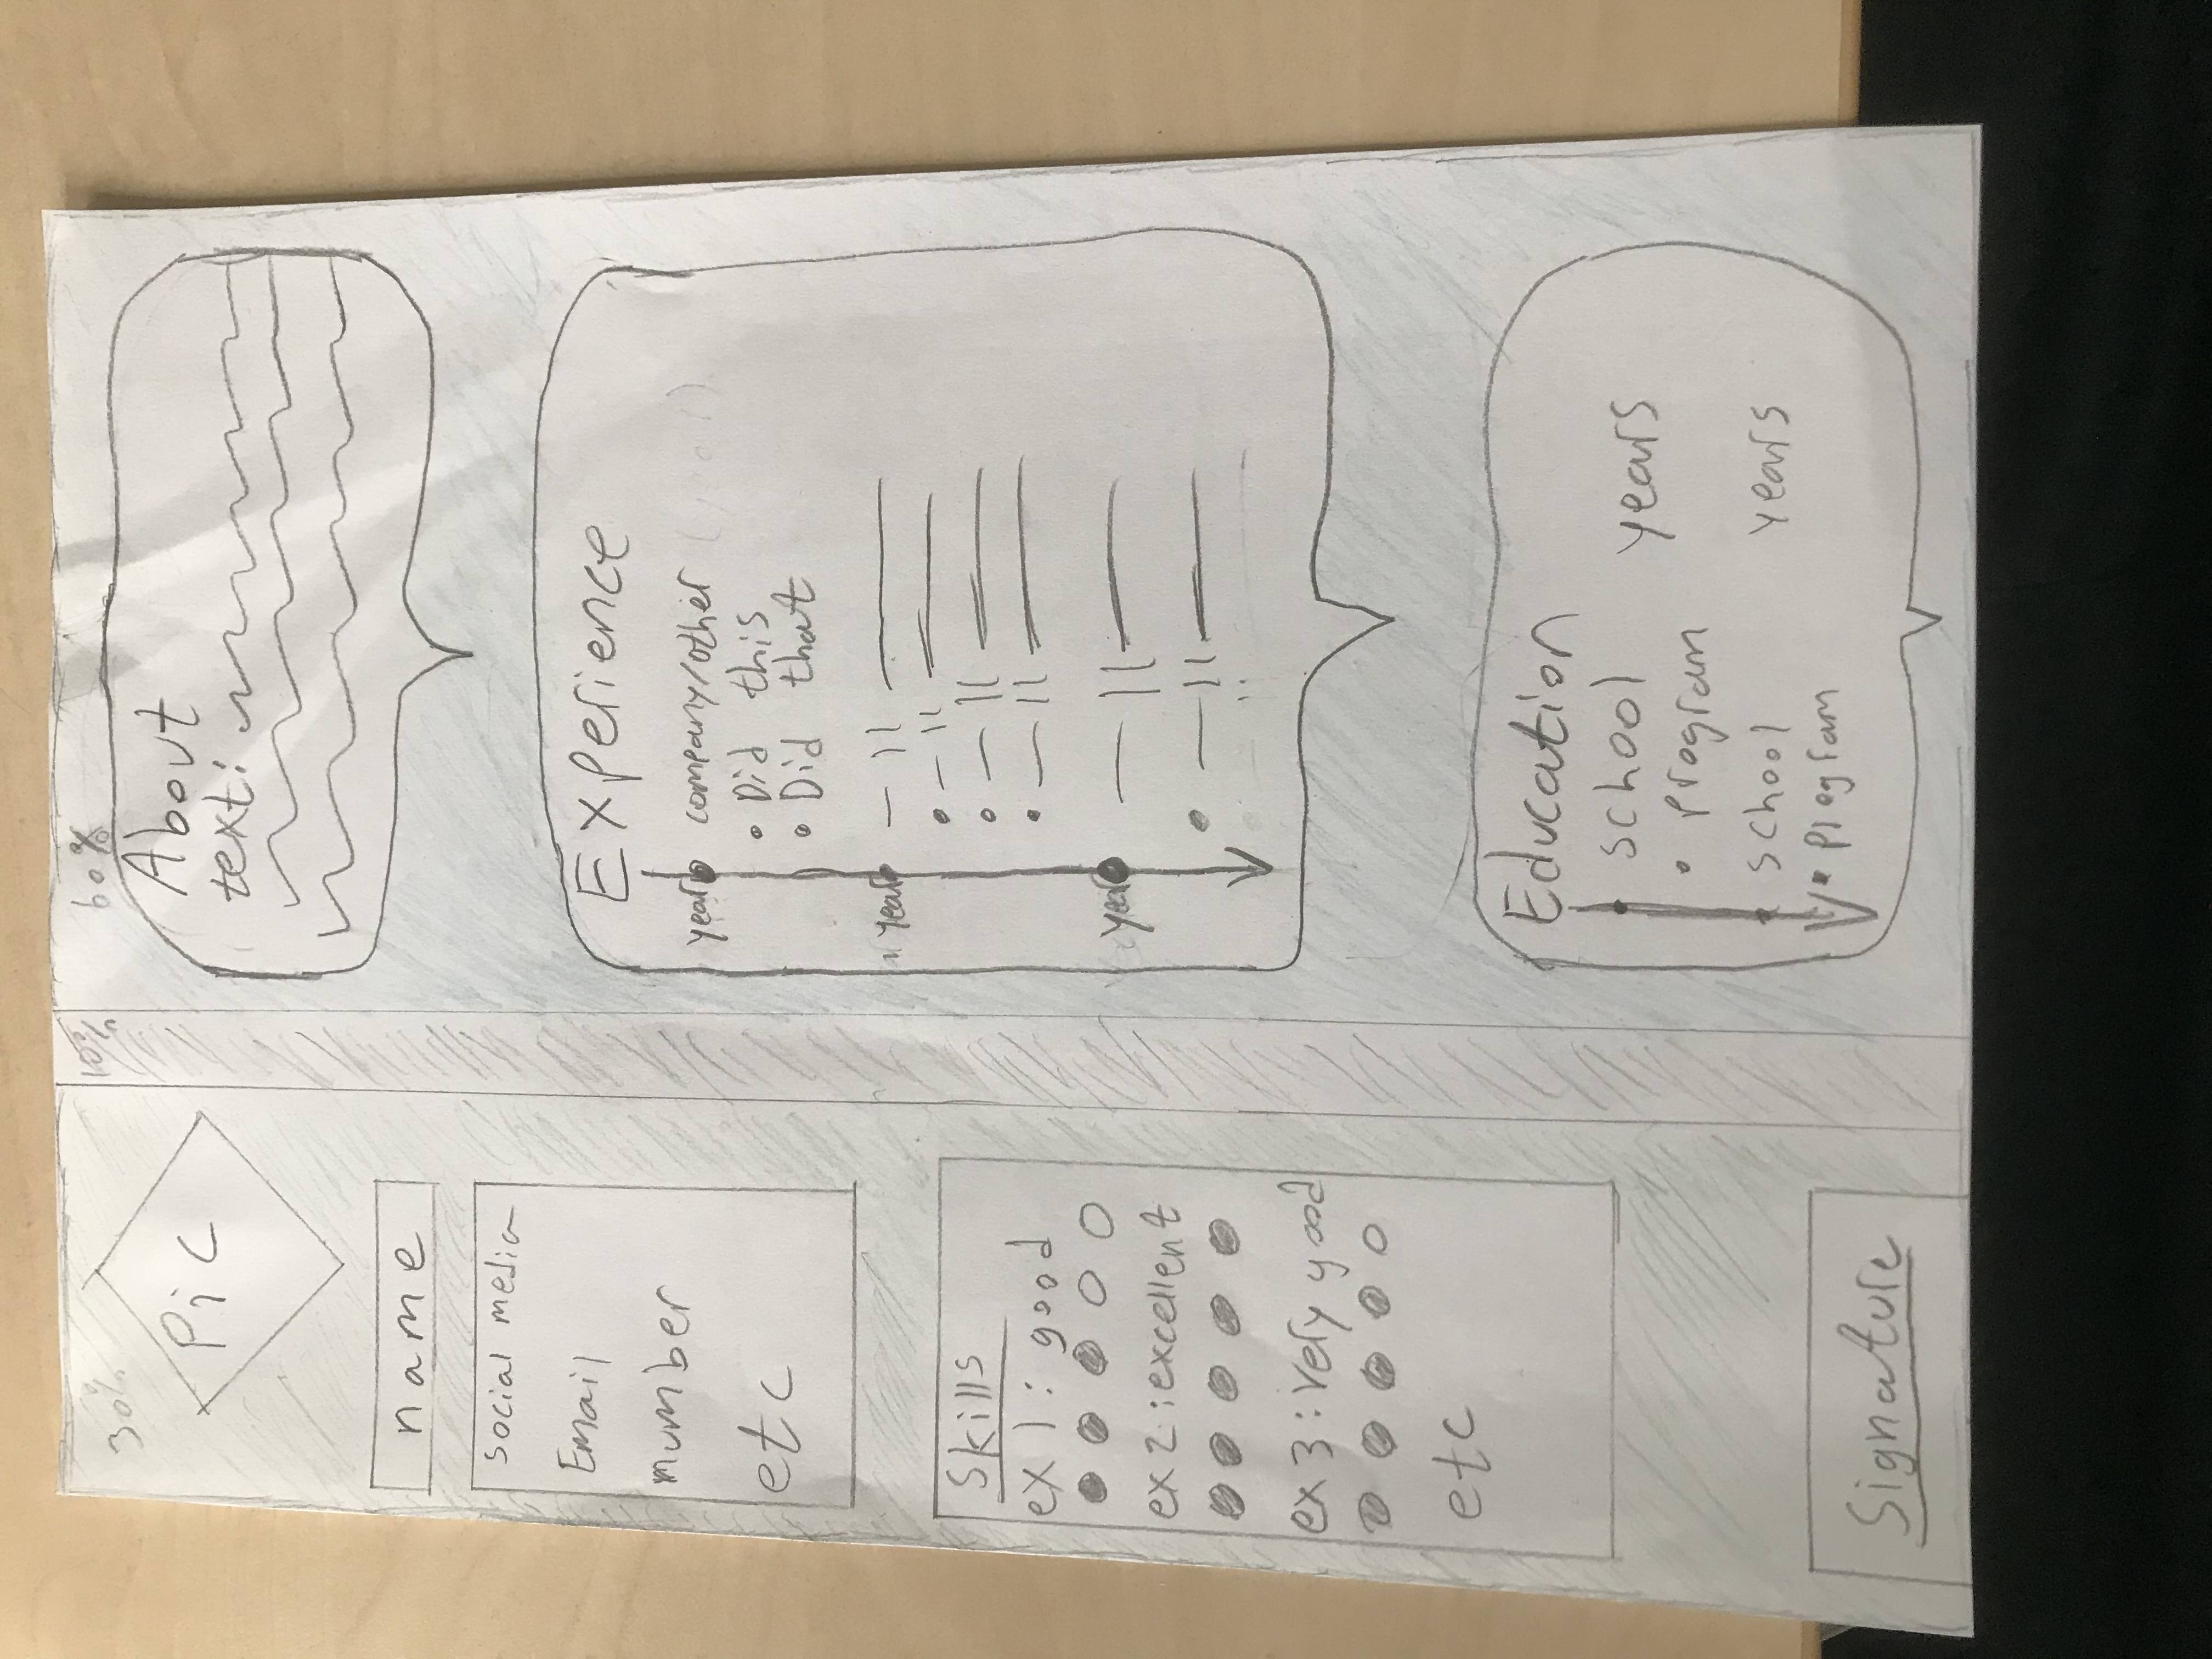 30%
10%
60%
Pic
name
social media
Email
number
etc
Skills
ex 1: good
ex 2: excellent
ex 3: very good
etc
Signature
About
text:
Experience
year
company/other
Did this
Did that
year
year
Education
school years
program
school years
program